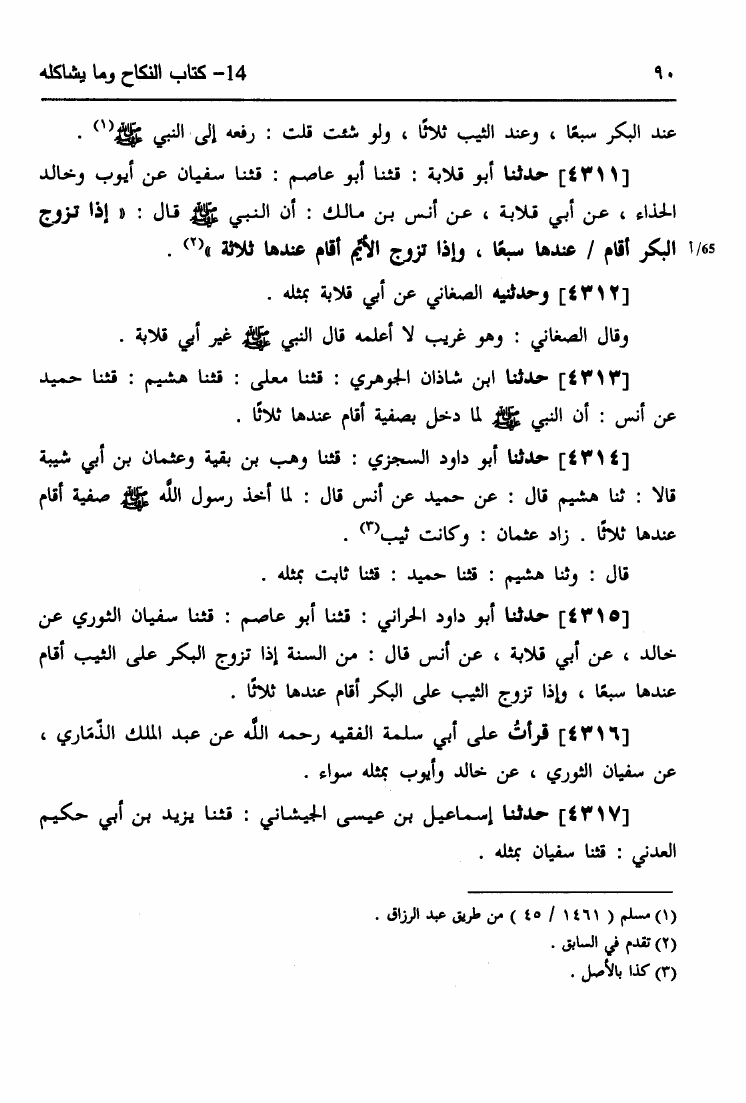 ٩٠ 14- كتاب النكاح وما يشاكله
عند البكر سبعًا ، وعند الثيب ثلاثًا ، ولو شئت قلت : رفعه إلى النبي ﷺ(١) .
[٤٣١١] حدثنا أبو قلابة : قثنا أبو عاصم : قثنا سفيان عن أيوب وخالد
الحذاء ، عن أبي قلابة ، عن أنس بن مالك : أن النبي ﷺ قال : « إذا تزوج
البكر أقام / عندها سبعًا ، وإذا تزوج الأيِّم أقام عندها ثلاثة »(٢) . 65/أ
[٤٣١٢] وحدثنيه الصغاني عن أبي قلابة بمثله .
وقال الصغاني : وهو غريب لا أعلمه قال النبي ﷺ غير أبي قلابة .
[٤٣١٣] حدثنا ابن شاذان الجوهري : قثنا معلى : قثنا هشيم : قثنا حميد
عن أنس : أن النبي ﷺ لما دخل بصفية أقام عندها ثلاثًا .
[٤٣١٤] حدثنا أبو داود السجزي : قثنا وهب بن بقية وعثمان بن أبي شيبة
قالا : ثنا هشيم قال : عن حميد عن أنس قال : لما أخذ رسول اللَّه ﷺ صفية أقام
عندها ثلاثًا . زاد عثمان : وكانت ثيب(٣) .
قال : وثنا هشيم : قثنا حميد : قثنا ثابت بمثله .
[٤٣١٥] حدثنا أبو داود الحراني : قثنا أبو عاصم : قثنا سفيان الثوري عن
خالد ، عن أبي قلابة ، عن أنس قال : من السنة إذا تزوج البكر على الثيب أقام
عندها سبعًا ، وإذا تزوج الثيب على البكر أقام عندها ثلاثًا .
[٤٣١٦] قرأتُ على أبي سلمة الفقيه رحمه اللَّه عن عبد الملك الذّمَاري ،
عن سفيان الثوري ، عن خالد وأيوب بمثله سواء .
[٤٣١٧] حدثنا إسماعيل بن عيسى الجيشاني : قثنا يزيد بن أبي حكيم
العدني : قثنا سفيان بمثله .
(١) مسلم ( ١٤٦١ / ٤٥ ) من طريق عبد الرزاق .
(٢) تقدم في السابق .
(٣) كذا بالأصل .